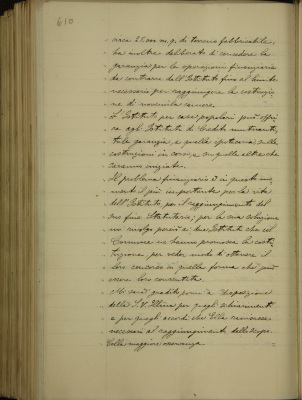 610
circa 25.000 m.q. di terreno fabbricabile.
ha inoltre deliberato di concedere la
garanzia per le operazioni finanziarie
da contrarre dall'Istituto fino al limite
necessario per raggiungere la costruzio-
ne di novemila camere.
L'Istituto per case popolari può offri-
re agli Istituti di Credito mutuanti,
tale garanzia e quella ipotecaria sulle
costruzioni in corso e su quelle altre che
saranno iniziate.
Il problema finanziario è in questo mo-
mento il più importante per la vita
dell'Istituto per il raggiungimento del
suo fine statutario; per la sua soluzione
mi rivolgo perciò a due Istituti che col
Comune ne hanno promossa la costi-
tuzione, per veder modo di ottenere il
loro concorso in quella forma che può
essere loro consentita.
Mi sarà gradito pormi a disposizione
della S.V. Ill.ma per quegli schiarimenti
e per quegli accordi che Ella ravvisasse
necessari al raggiungimento dello scopo.
Colla maggiore osservanza.